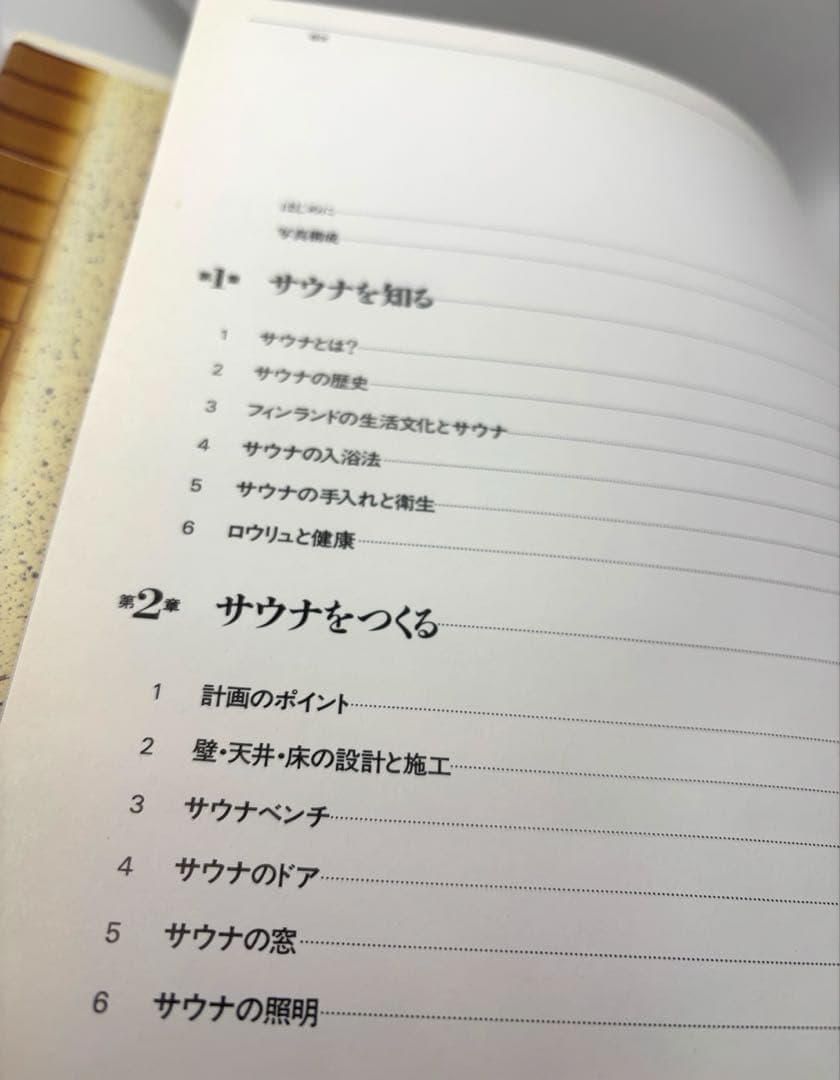 はじめに
第1章 サウナを知る
1 サウナとは?
2 サウナの歴史
3 フィンランドの生活文化とサウナ
4 サウナの入浴法
5 サウナの手入れと衛生
6 ロウリュと健康
第2章 サウナをつくる
1 計画のポイント
2 壁・天井・床の設計と施工
3 サウナベンチ
4 サウナのドア
5 サウナの窓
6 サウナの照明